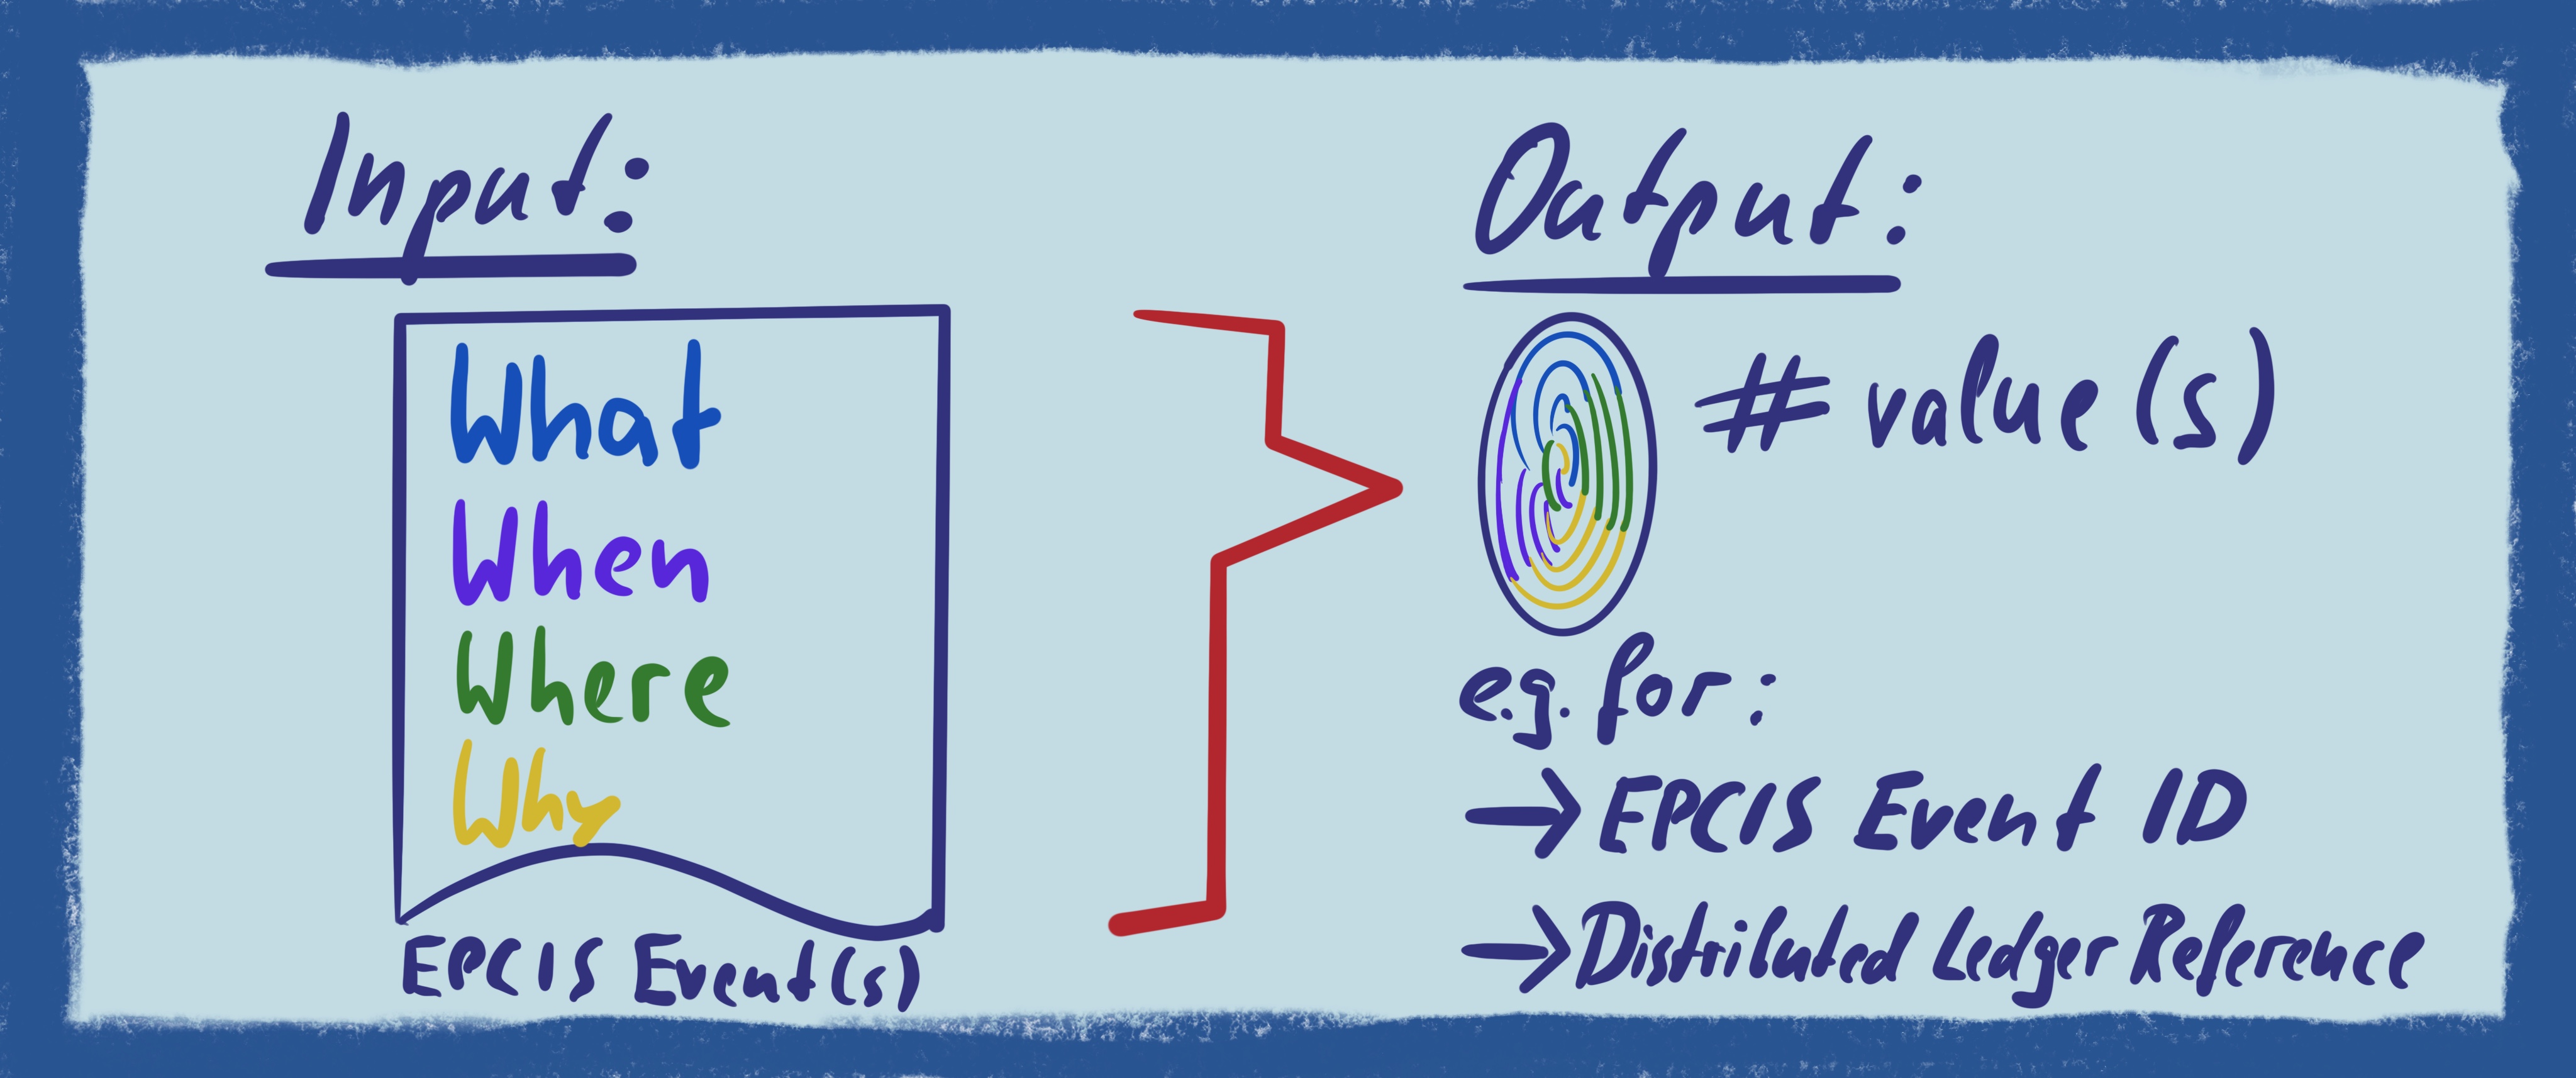 Input:
What
When
Where
Why
EPCIS Event(s)
Output:
# value(s)
e.g. for:
→ EPCIS Event ID
→ Distributed Ledger Reference